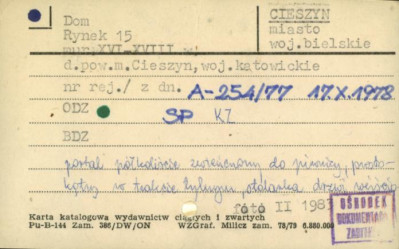 Dom
Rynek 15
mur. XVI-XVIII w.
d.pow.m.Cieszyn, woj.katowickie
CIESZYN
miasto
woj.bielskie
nr rej./ z dn. A-254/77 17.X.1978
ODZ SP KZ
BDZ
portal półkoliście zwieńczony do piwnicy, prosto-
kątny w trakcie tylnym, drzwi
foto II 1983
Karta katalogowa wydawnictw ciągłych i zwartych
Pu-B-144 Zam. 386/DW/ON WZGraf. Milicz zam. 78/79 6.860.000
OŚRODEK
DOKUMENTACJI